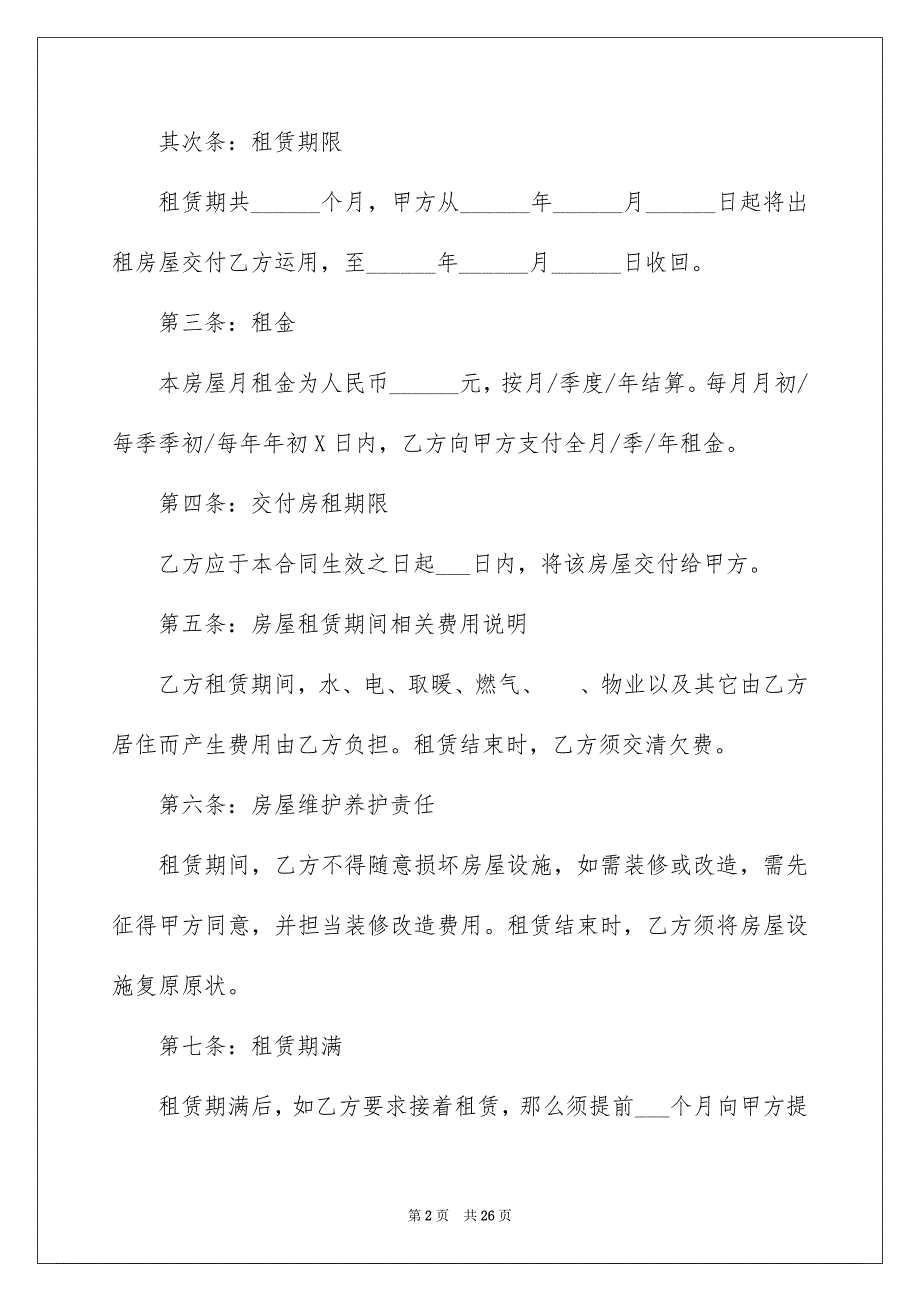 其次条：租赁期限
租赁期共______个月，甲方从______年______月______日起将出
租房屋交付乙方运用，至______年______月______日收回。
第三条：租金
本房屋月租金为人民币______元，按月/季度/年结算。每月月初/
每季季初/每年年初X日内，乙方向甲方支付全月/季/年租金。
第四条：交付房租期限
乙方应于本合同生效之日起___日内，将该房屋交付给甲方。
第五条：房屋租赁期间相关费用说明
乙方租赁期间，水、电、取暖、燃气、　、物业以及其它由乙方
居住而产生费用由乙方负担。租赁结束时，乙方须交清欠费。
第六条：房屋维护养护责任
租赁期间，乙方不得随意损坏房屋设施，如需装修或改造，需先
征得甲方同意，并担当装修改造费用。租赁结束时，乙方须将房屋设
施复原原状。
第七条：租赁期满
租赁期满后，如乙方要求接着租赁，那么须提前___个月向甲方提
第 2 页 共 26 页